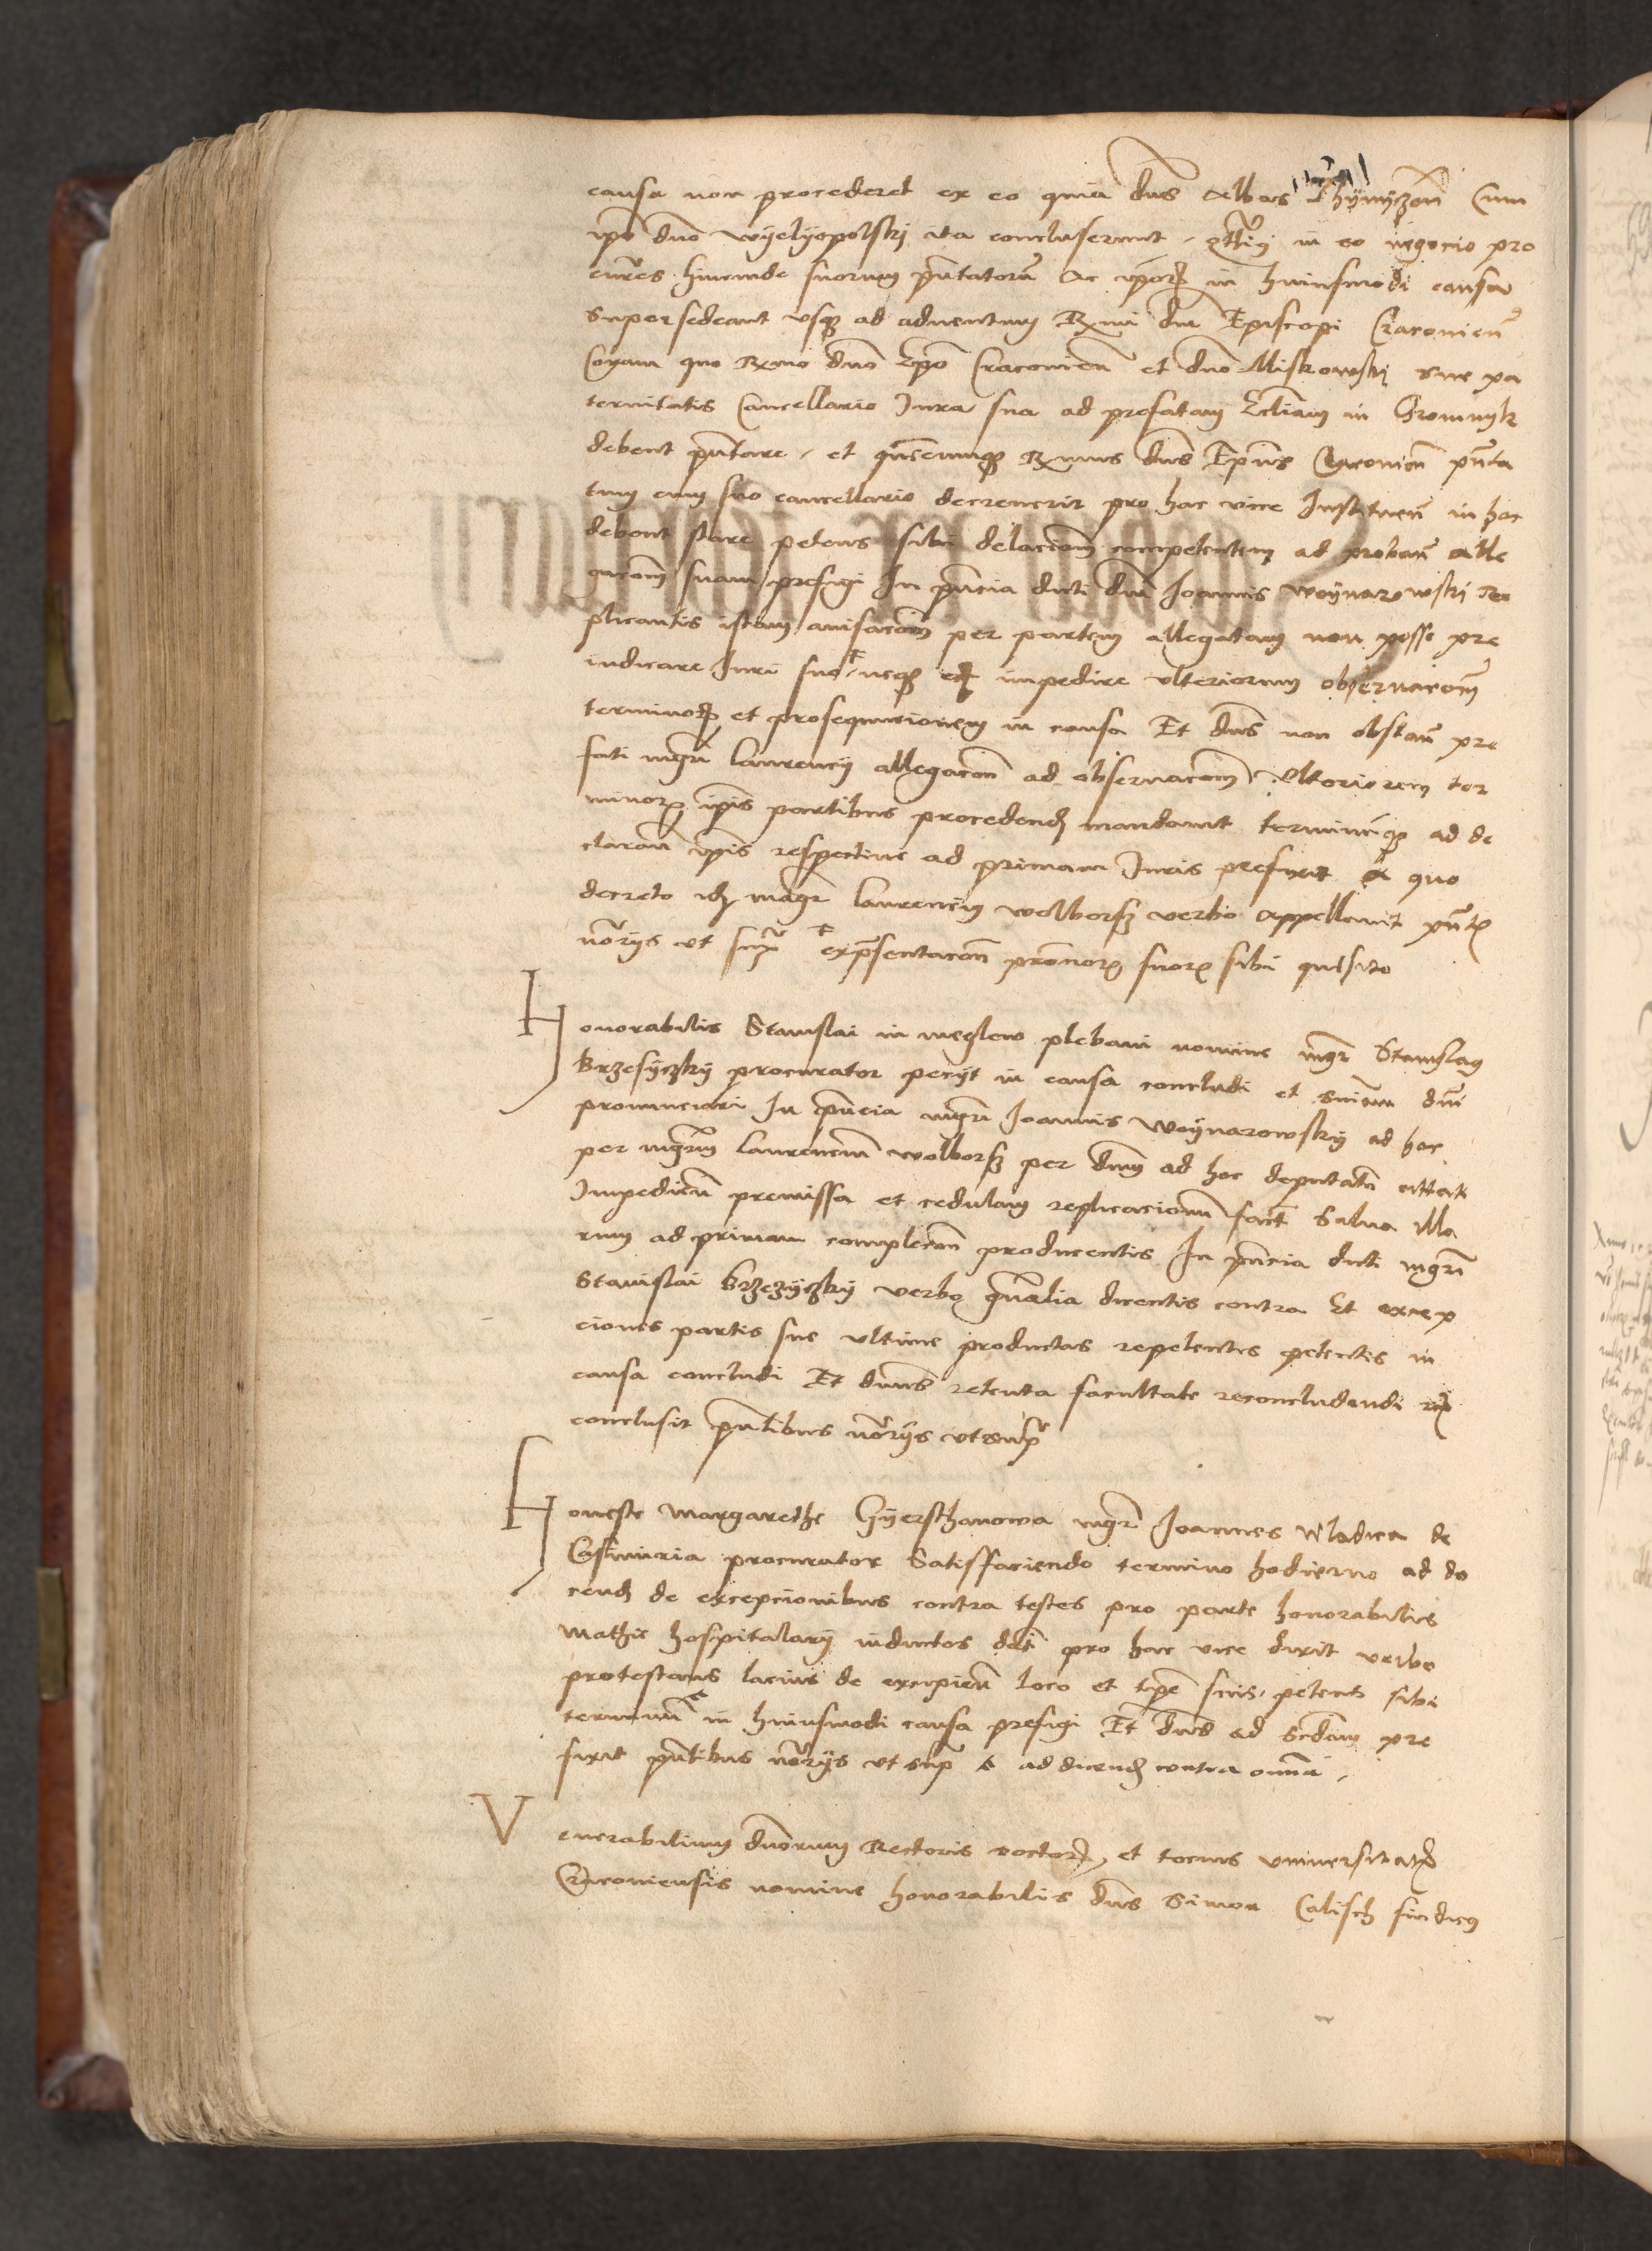 causa non procederet ex eo quia dns Abbas Thÿnÿczen Cum
ipo dno Wyelyopolski ita concluserunt in eo negocio pro
cures hincinde suorum pntatorum ac ipor in huiusmodi causa
Supersedeant usq ad aduentum Rmi dni Episcopi Cracouien
Coram quo Rmo dno Epo Cracouien et dno Miskowski sue pa
ternitatis Cancellario Jura sua ad prefatam Ecliam in Gromnyk
debent pntare / et quemcumq Rmus dns Epus Cracouien pnta
tum cum suo cancellario decreuerit pro hac vice Instituen in hoc
debent stare petens sibi delacionem competentem ad proban alle
gacom suam prefigi In pncia dicti dni Joannis Woynarowski re
plicantis istam auisacom per partem allegatam non posse pre
iudicare Juri suo neq impedire ulteriorum obseruacom
terminor et prosequucionem in causa Et dns non obstan pre
fati mgri Laurencij allegacom ad obseruacom Ulteriorem ter
minor ipis partibus procedend mandauit terminuq ad de
claran ipis respectiue ad primam Juris prefixit A quo
decreto idem magr Laurencius Wolborsz verbo appellauit pntibus
notrijs ut supra
Honorabilis Stanislai in Meglew plebani nomine mgr Stanislaus
Brzesÿczkÿ procurator pecijt in causa concludi et sniam dni
pronunciari In pncia mgri Joannis Woÿnarowskÿ ad hoc
per mgrum Laurencium Wolborsz per dnm ad hoc deputatum cittati
Impedien premissa et cedulam replicacionum fact Salua illa
rum ad primam complecom producentis In pncia dicti mgri
Stanislai Brzezÿczkÿ verbo gnalia dicentis contra Et excep
ciones partis sue ultime productas repetentis petentis in
causa concludi Et dnus retenta facultate reconcludendi
conclusit pntibus notrijs ut supra
Honeste Margarethe Gÿersthanowa mgr Joannes Wladica de
Casimiria procurator Satisfaciendo termino hodierno ad do
cend de excepcionibus contra testes pro parte honorabilis
Mathie hospitalarij inductos dat pro hac vice dixit verbo
protestans lacius de excipien loco et tpe suis petens sibi
terminum in huiusmodi causa prefigi Et dns ad scdam pre
fixit pntibus notrijs ut supra ad dicend contra omnia
Venerabilium dnorum Rectoris doctor et tocius uniuersitatis
Cracouiensis nomine honorabilis dns Simon Calisch sindicus